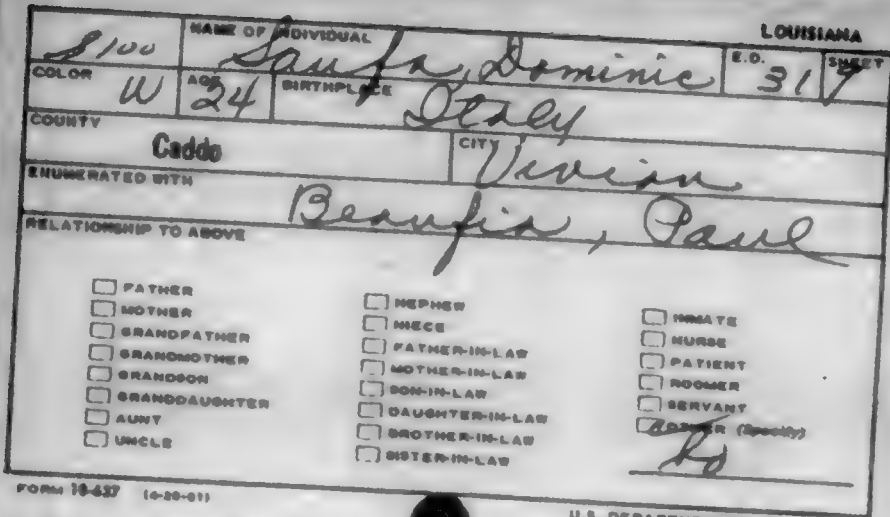 LOUISIANA
NAME OF INDIVIDUAL
E.D.
SHEET
Dominic
31
COLOR
W
AGE
24
BIRTHPLACE
Italy
COUNTY
Caddo
CITY
Vivian
ENUMERATED WITH
Beaufia, Paul
RELATIONSHIP TO ABOVE
FATHER
MOTHER
GRANDFATHER
GRANDMOTHER
GRANDSON
GRANDDAUGHTER
AUNT
UNCLE
NEPHEW
NIECE
FATHER-IN-LAW
MOTHER-IN-LAW
SON-IN-LAW
DAUGHTER-IN-LAW
BROTHER-IN-LAW
SISTER-IN-LAW
INMATE
NURSE
PATIENT
ROOMER
SERVANT
OTHER (Specify)
FORM 10-637